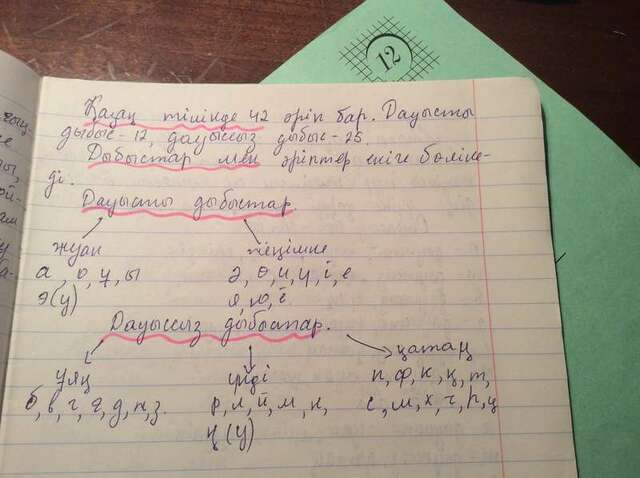 12
Қазақ тілінде 42 әріп бар. Дауысты
дыбыс - 12, дауыссыз дыбыс - 25.
Дыбыстар мен әріптер екіге бөліне-
ді.
Дауысты дыбыстар
жуан
а, о, ұ, ы
э (у)
жіңішке
ә, ө, и, ү, і, е
я, ю, ё
Дауыссыз дыбыстар.
ұяң
б, в, г, ғ, д, ж, з.
үнді
р, л, й, м, н,
ң (у)
қатаң
п, ф, к, қ, т,
с, ш, х, ч, һ, ц